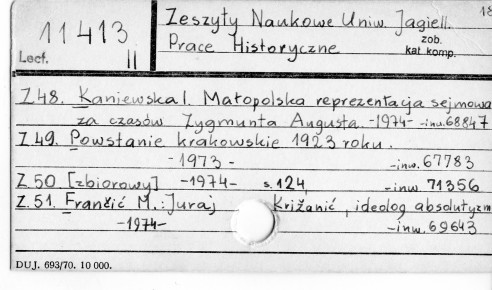 11413
Lect. II
Zeszyty Naukowe Uniw. Jagiell. 18
Prace Historyczne zob. kat komp.
Z 48. Kaniewska I. Małopolska reprezentacja sejmowa
za czasów Zygmunta Augusta. -1974- -inw. 68847
Z 49. Powstanie krakowskie 1923 roku.
-1973- -inw. 67783
Z 50 [zbiorowy] -1974- s. 124, -inw. 71356
Z. 51. Frančić M.: Juraj Križanić, ideolog absolutyzm
-1974- -inw. 69643
DUJ. 693/70. 10 000.